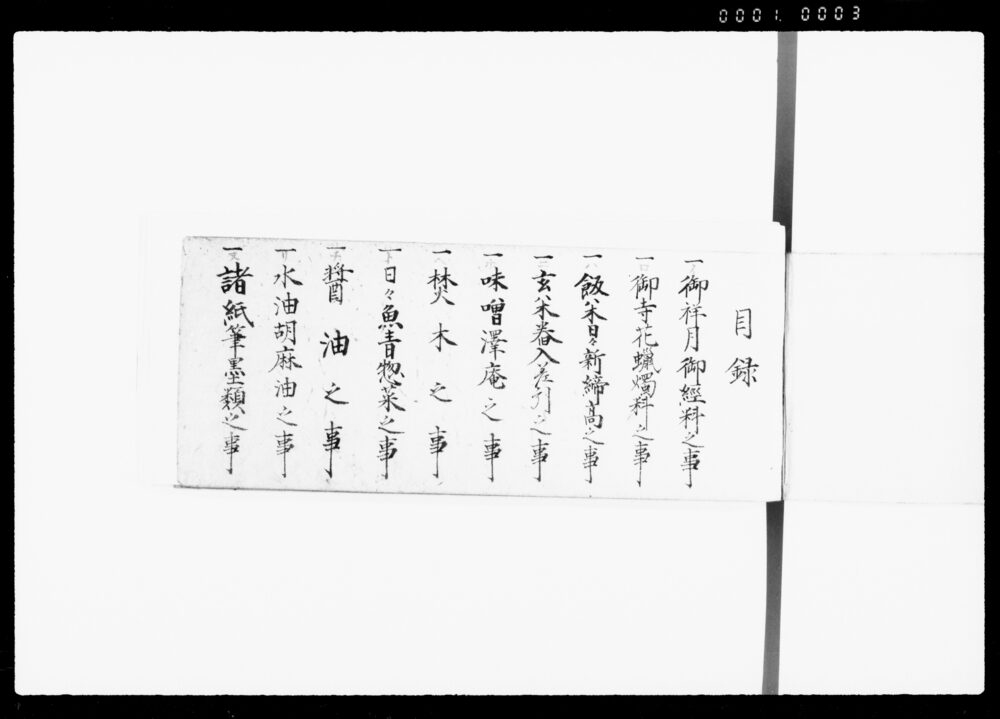 0001. 0003
目録
一御祥月御經料之事
一御寺花蠟燭料之事
一飯米日々新締高之事
一玄米舂入差引之事
一味噌澤庵之事
一焚木之事
一日々魚青惣菜之事
一醬油之事
一水油胡麻油之事
一諸紙筆墨類之事